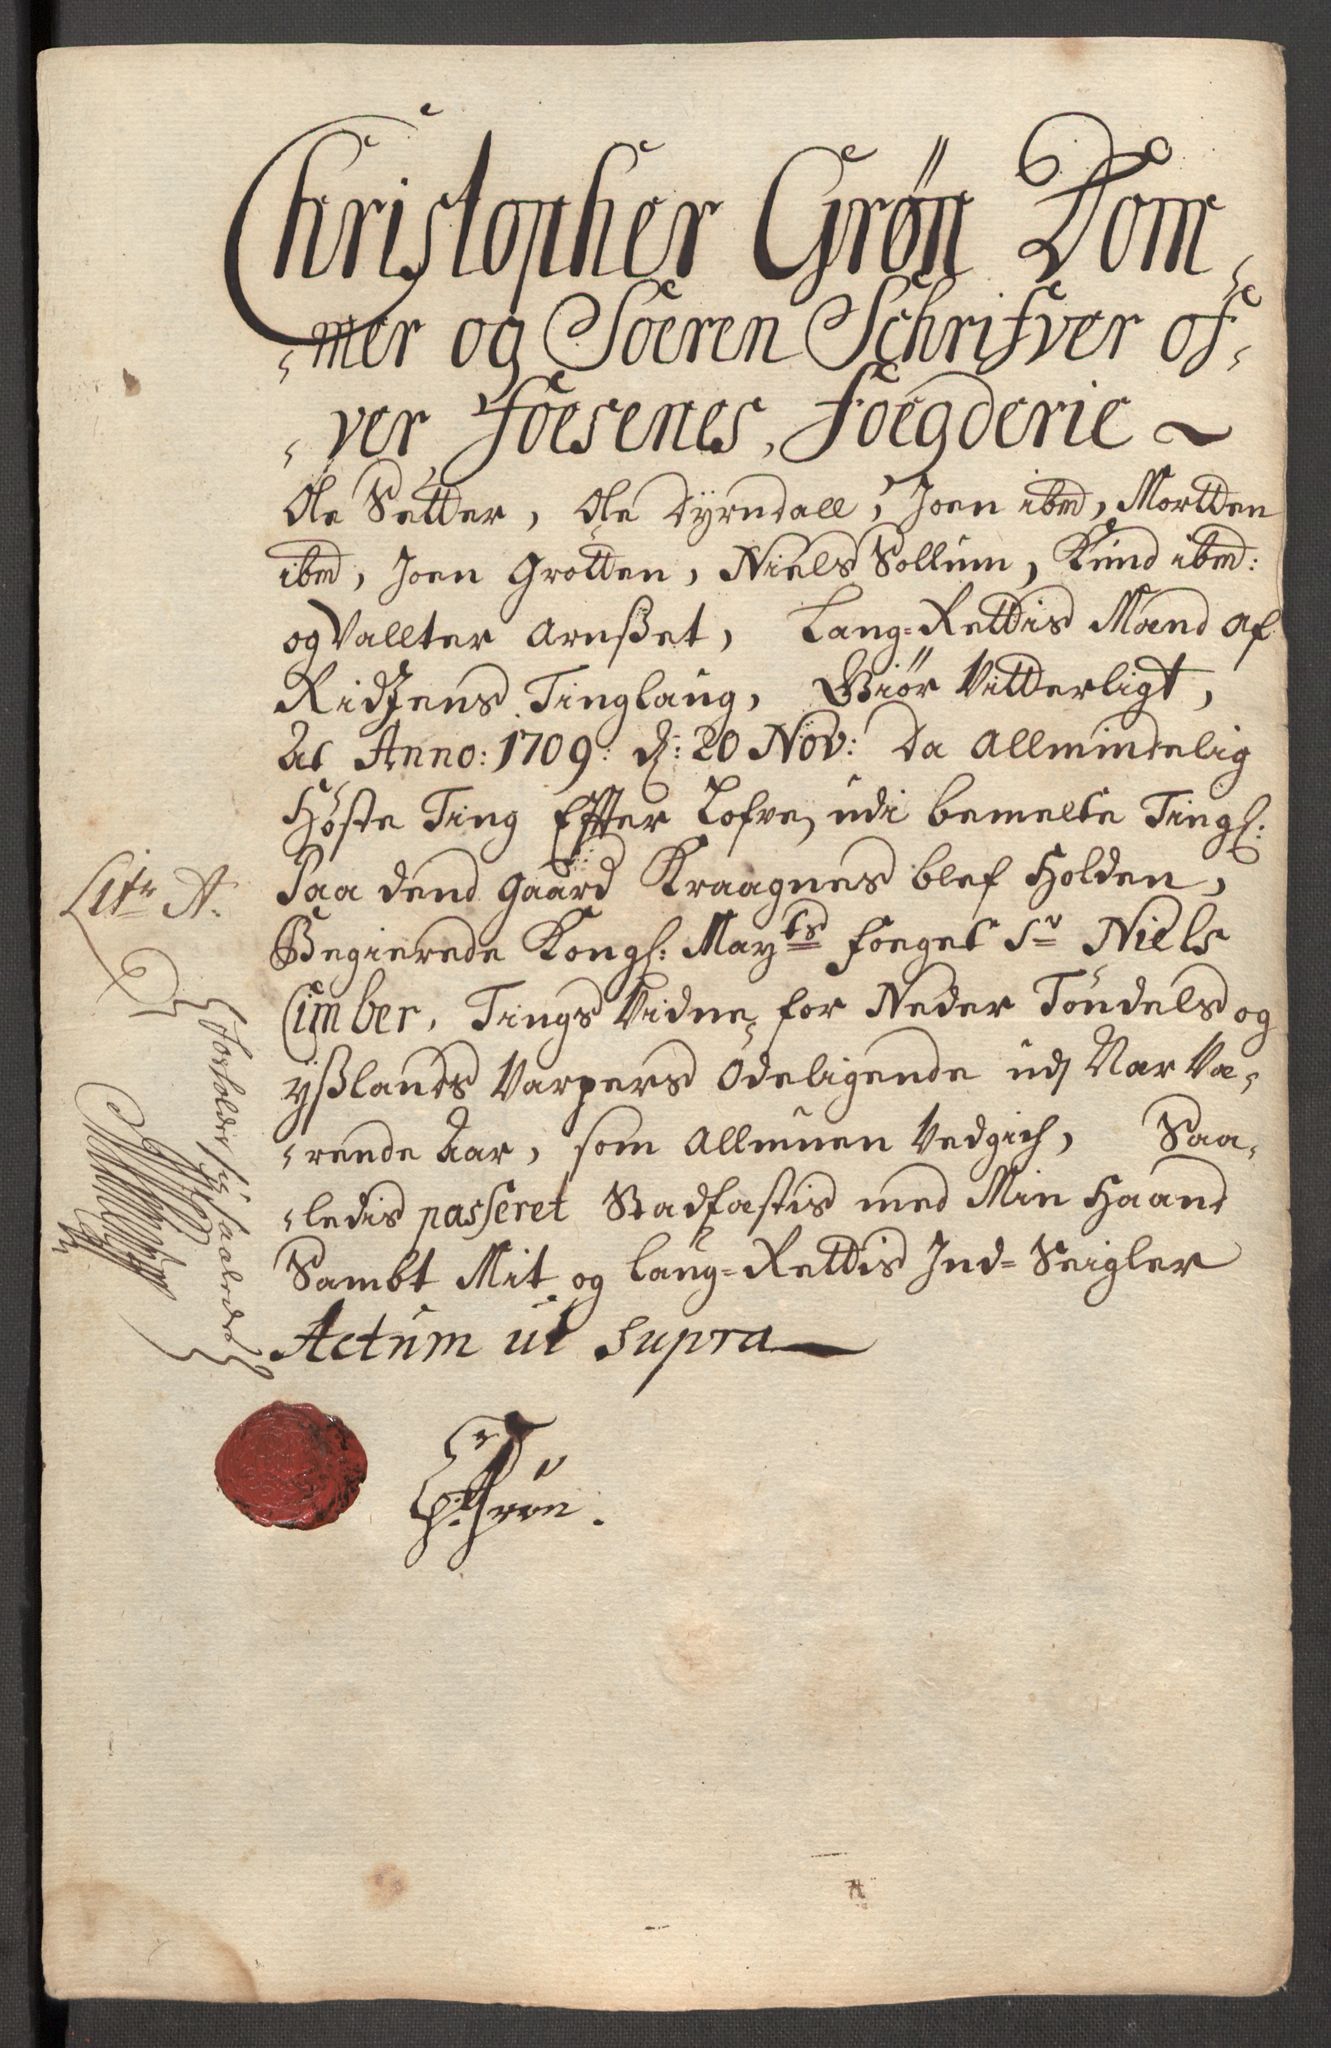 Christopher Grøn Dom-
-mer og Soeren Schrifver of-
-ver Foesenes, Foegderie ~
Ole Setter, Ole Dyrndall, Joen ibm, Mortten
ibm, Joen Grotten, Niels Sollum, Knud ibm:
og Vallter Arnßet, Laug=Rettis Mænd af
Ridzens Tinglaug, Giør Vitterligt,
At Anno: 1709: d: 20 Nov: Da Allmindelig
Høste Ting Effter Lofven udi bemelte Tingl:
Paa dend gaard Kraagnes blef Holden,
Begierede Kongl: Mayts foeget Sr Niels
Cimber, Tings Vidne for Neder Tøndels og
yßlands Varpers Ödeligende udj Nær Væ-
-rende Aar, som Allmuen Vedgich, Saa-
-ledis passeret Stadfæstis med Min Haand
Sambt Mit og Laug=Rettis Ind=Seigler
Actum ut supra
Litr A.
Forholder sig saaledis
Ch: Grøn.